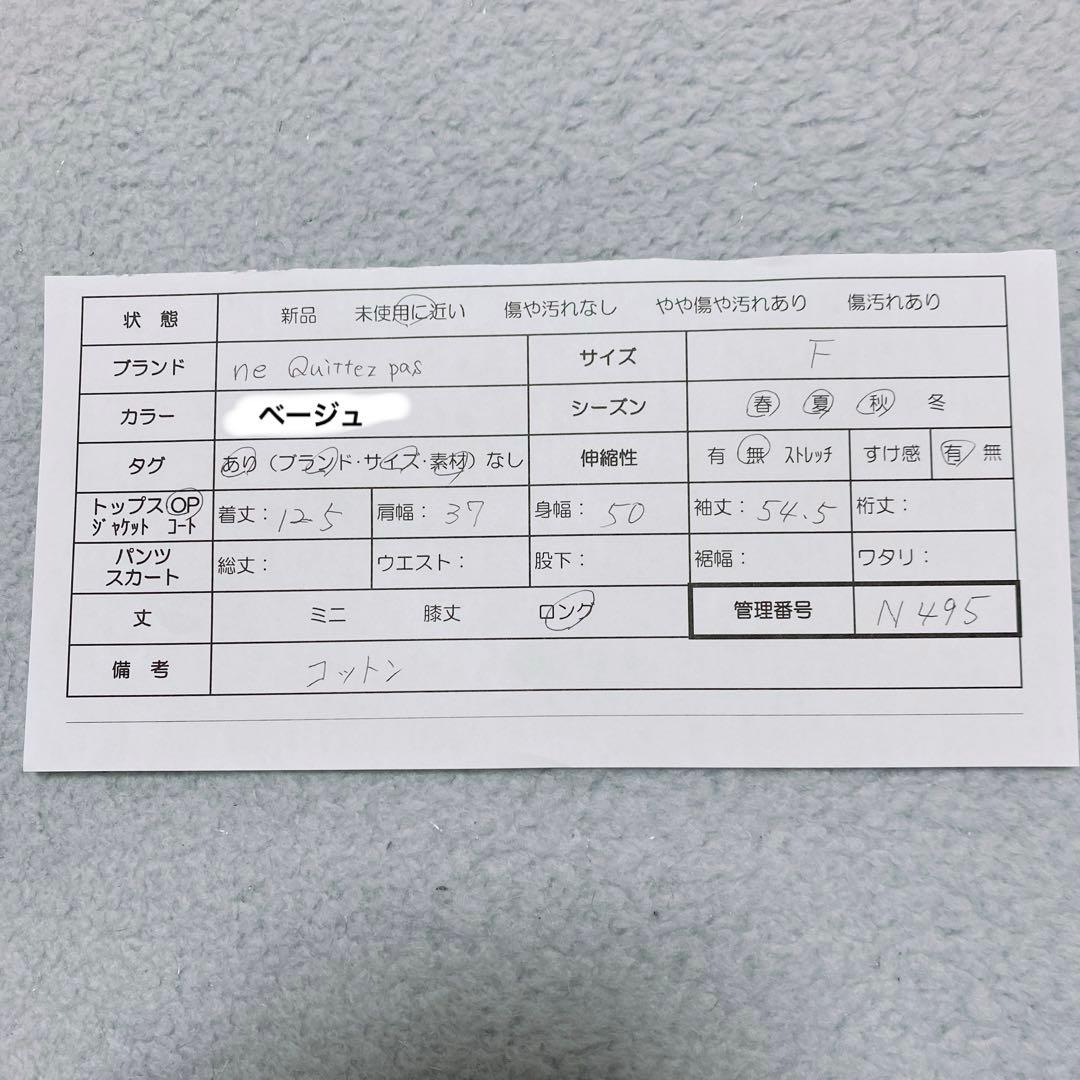 状 態 新品 未使用に近い 傷や汚れなし やや傷や汚れあり 傷汚れあり
ブランド ne Quittez pas サイズ F
カラー ベージュ シーズン 春 夏 秋 冬
タグ あり（ブランド・サイズ・素材）なし 伸縮性 有 無 ストレッチ すけ感 有 無
トップス OP
ジャケット コート
着丈：125 肩幅：37 身幅：50 袖丈：54.5 裄丈：
パンツ
スカート
総丈： ウエスト： 股下： 裾幅： ワタリ：
丈 ミニ 膝丈 ロング 管理番号 N495
備 考 コットン